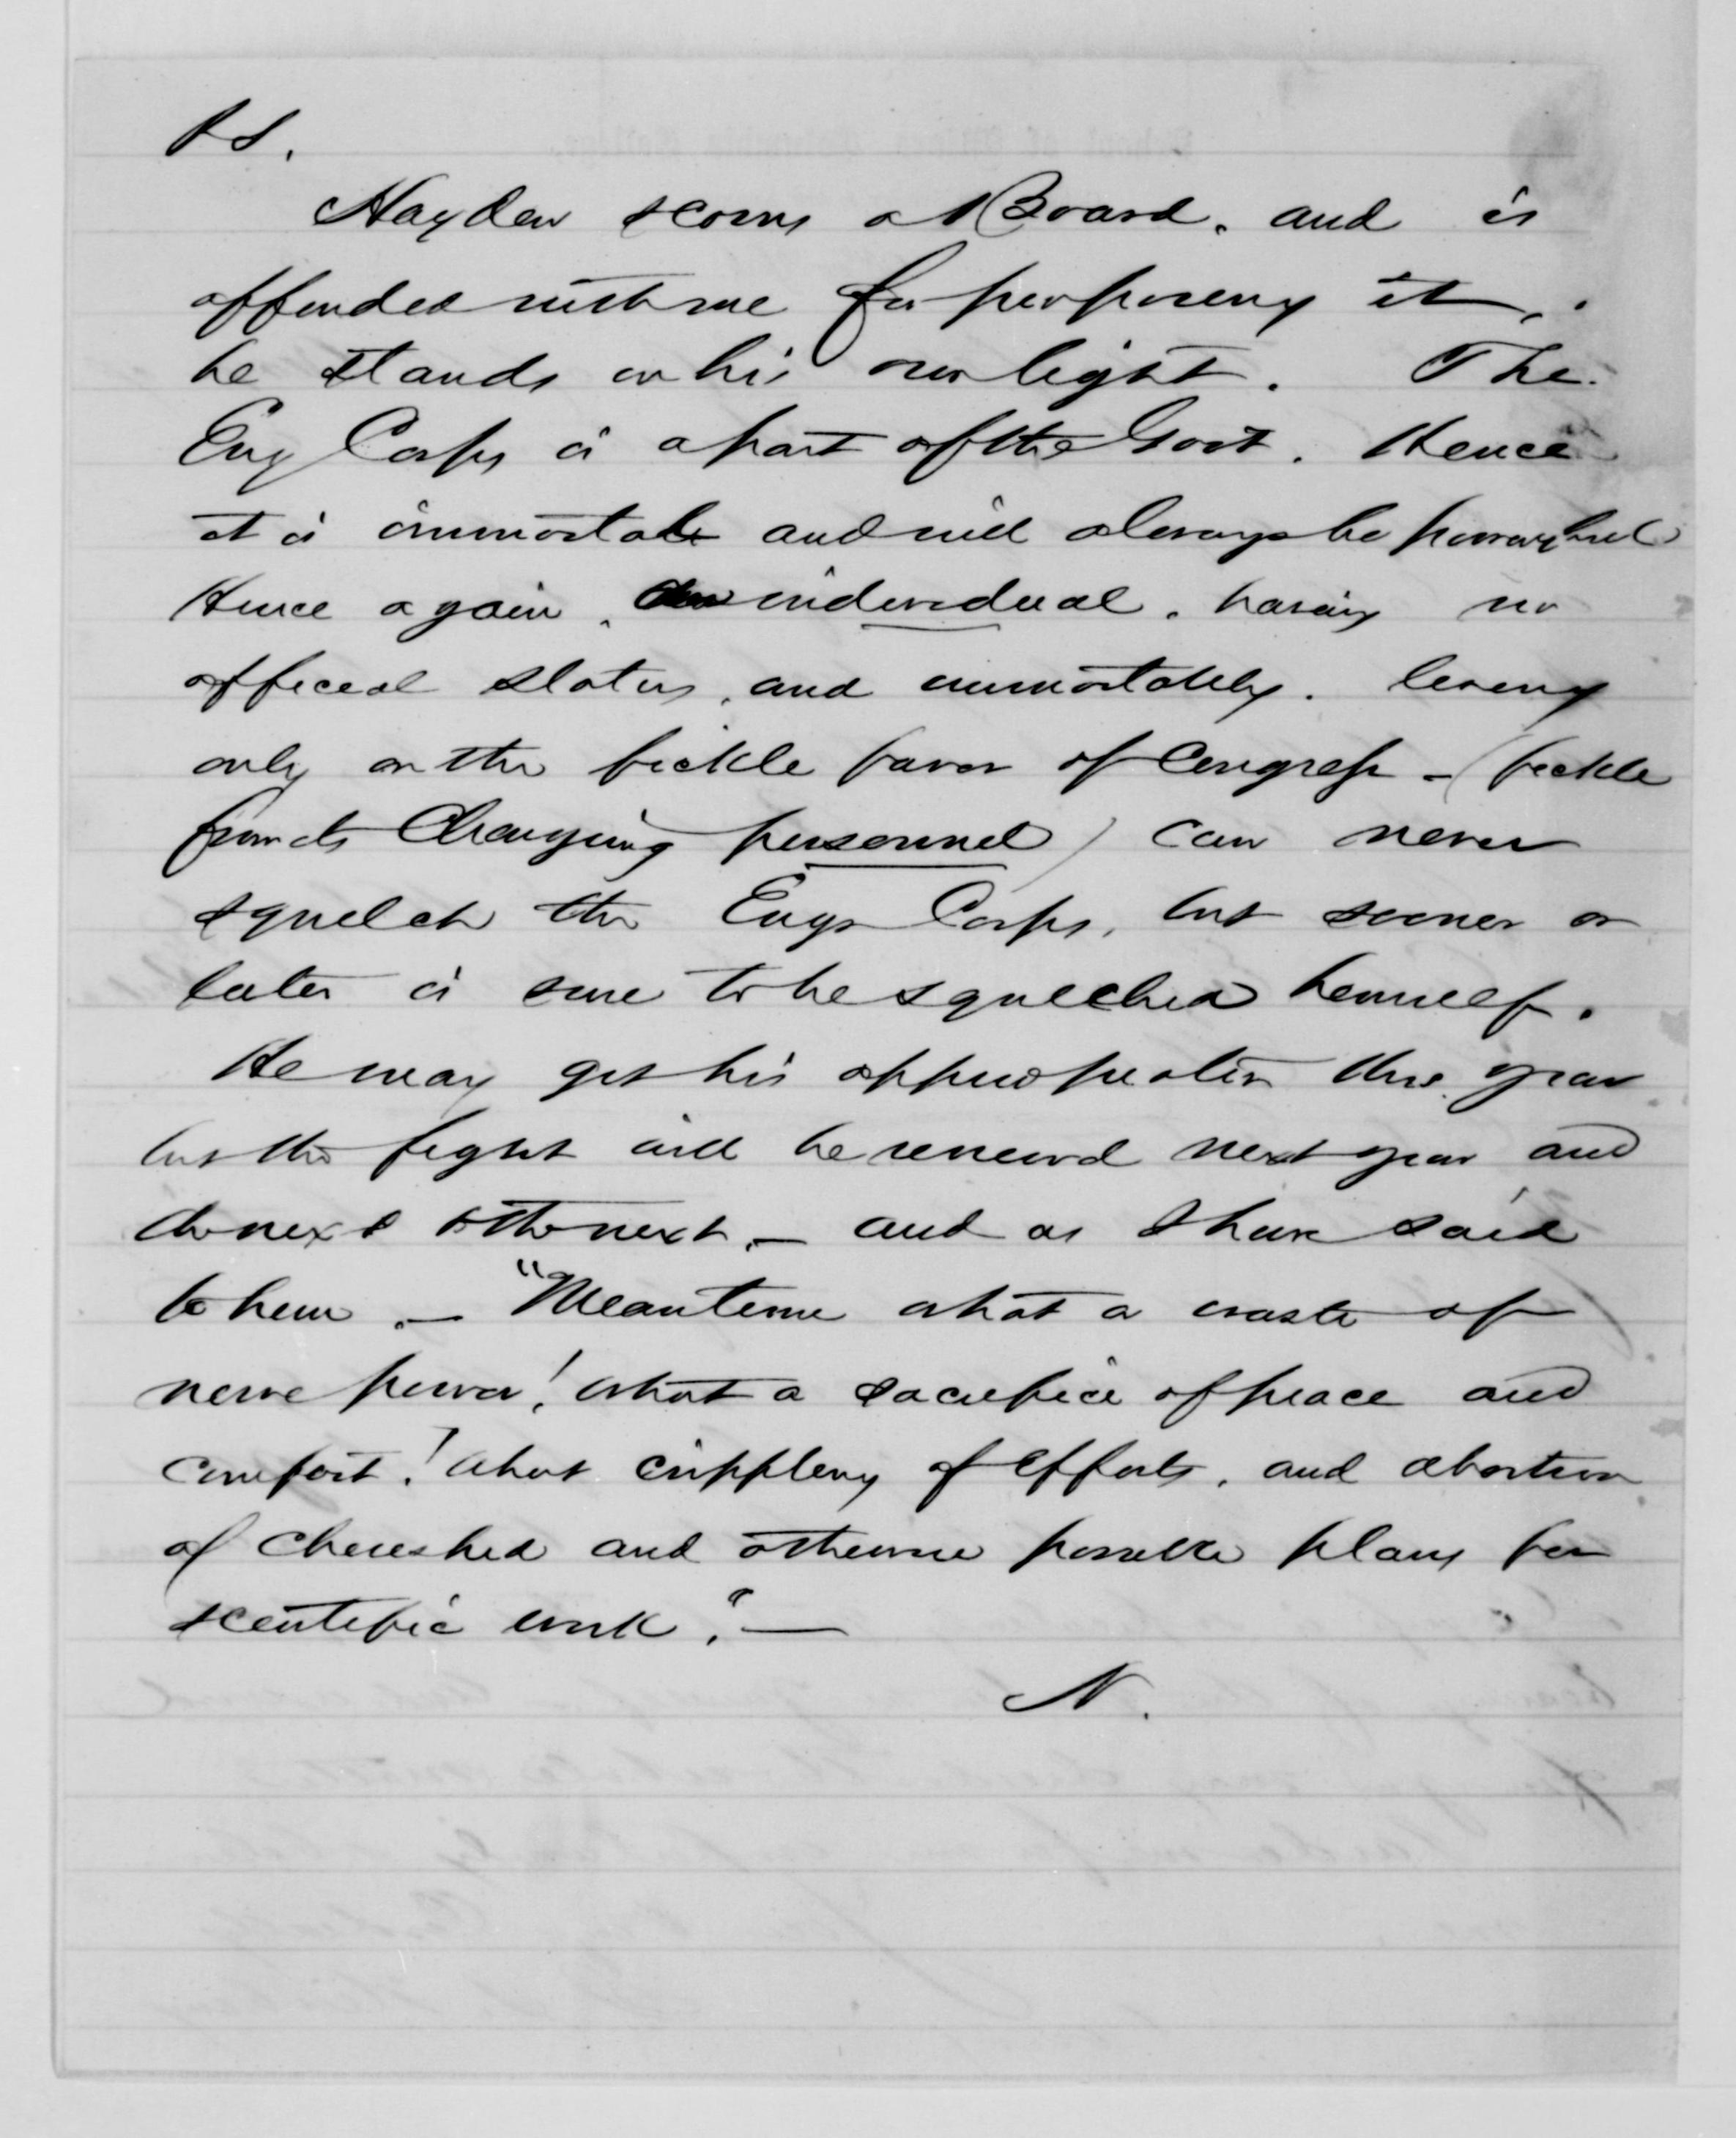 P.S.
Hayden scorns a Board, and is
offended with me for proposing it,.
he stands in his own light. The
Eng Corps is a part of the Govt. Hence
it is immortal and will always be powerful
Hence again, an individual, having no
official status, and immortality. living
only on the fickle favor of Congress - (fickle
from its changing personnel) can never
squelch the Engr Corps, but sooner or
later is sure to be squelched himself.
He may get his appropriation this year
but the fight will be renewed next year and
the next & the next, — and as I have said
to him. — "Meantime what a waste of
nerve power! what a sacrifice of peace and
comfort! what crippling of efforts, and abortion
of cherished and otherwise possible plans for
scientific work." —
N.